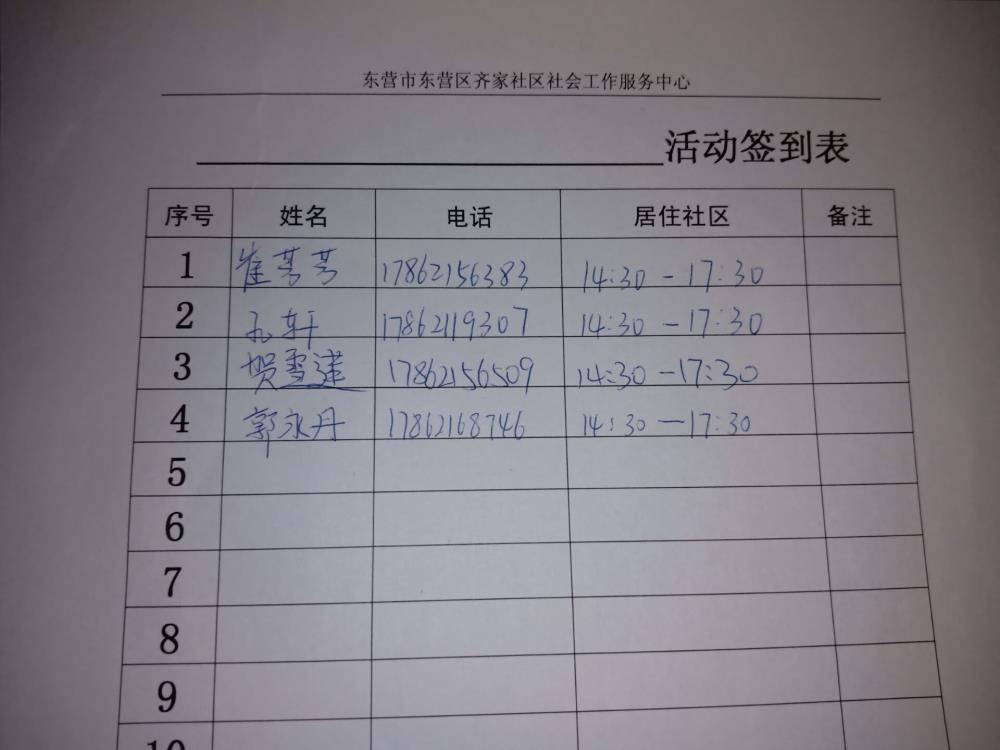 东营市东营区齐家社区社会工作服务中心
活动签到表
序号 姓名 电话 居住社区 备注
1 崔芳芳 17862156383 14:30-17:30
2 孔轩 17862119307 14:30-17:30
3 贺雪莲 17862156509 14:30-17:30
4 郭永丹 17862168746 14:30-17:30
5
6
7
8
9
10